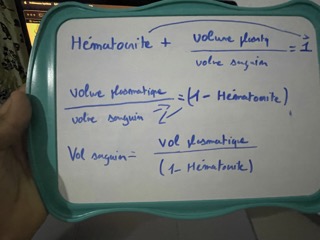 Hématocrite + volume plasmatq / volume sanguin = 1
volume plasmatique / volume sanguin = (1 - Hématocrite)
Vol sanguin = vol plasmatique / (1 - Hématocrite)